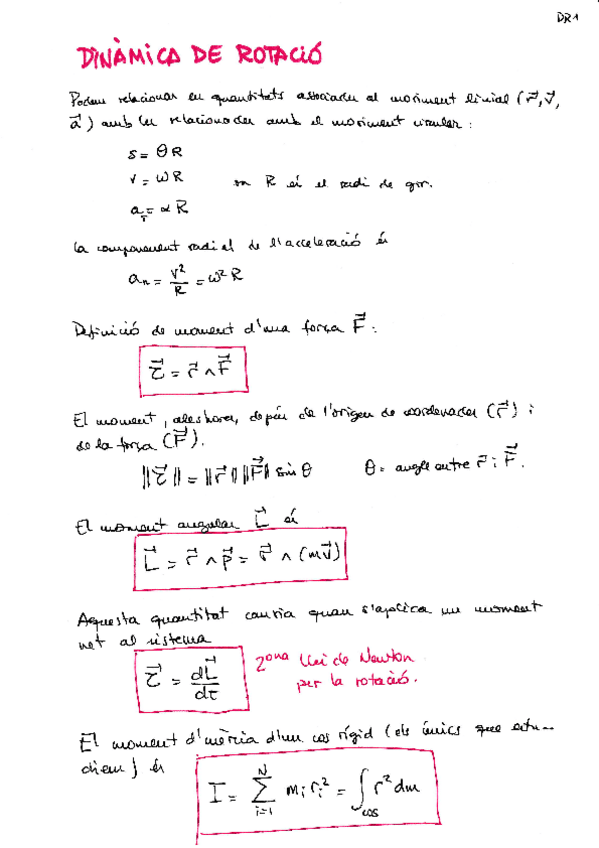 DR1
DINÀMICA DE ROTACIÓ
Podem relacionar les quantitats associades al moviment linial (r⃗, v⃗,
a⃗) amb les relacionades amb el moviment circular:
s = θR
v = ωR on R és el radi de gir.
a_T = αR
La component radial de l'acceleració és
a_n = v²/R = ω²R
Definició de moment d'una força F⃗:
τ⃗ = r⃗ ∧ F⃗
El moment, aleshores, depèn de l'origen de coordenades (r⃗) i
de la força (F⃗).
||τ⃗|| = ||r⃗|| ||F⃗|| sin θ θ = angle entre r⃗ i F⃗.
El moment angular L⃗ és
L⃗ = r⃗ ∧ p⃗ = r⃗ ∧ (mv⃗)
Aquesta quantitat canvia quan s'aplica un moment
net al sistema
τ⃗ = dL⃗/dt 2ona Llei de Newton
per la rotació.
El moment d'inèrcia d'un cos rígid (els únics que estu-
diem) és
I = ∑_{i=1}^{N} m_i r_i² = ∫_cos r² dm